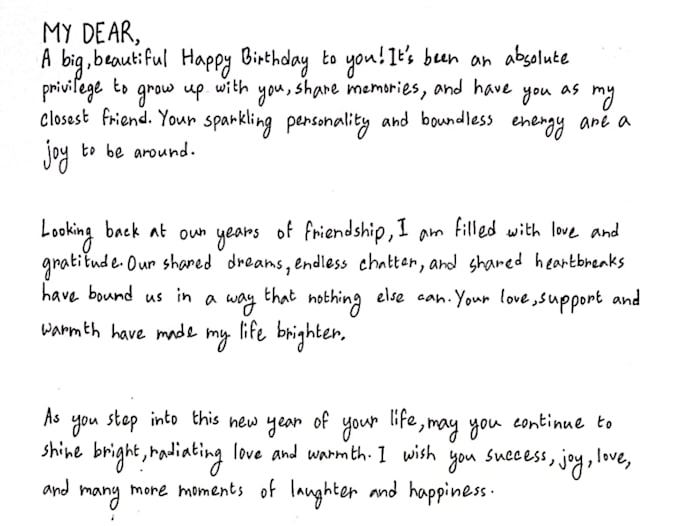 MY DEAR,
A big, beautiful Happy Birthday to you! It's been an absolute
privilege to grow up with you, share memories, and have you as my
closest friend. Your sparkling personality and boundless energy are a
joy to be around.
Looking back at our years of friendship, I am filled with love and
gratitude. Our shared dreams, endless chatter, and shared heartbreaks
have bound us in a way that nothing else can. Your love, support and
warmth have made my life brighter.
As you step into this new year of your life, may you continue to
shine bright, radiating love and warmth. I wish you success, joy, love,
and many more moments of laughter and happiness.